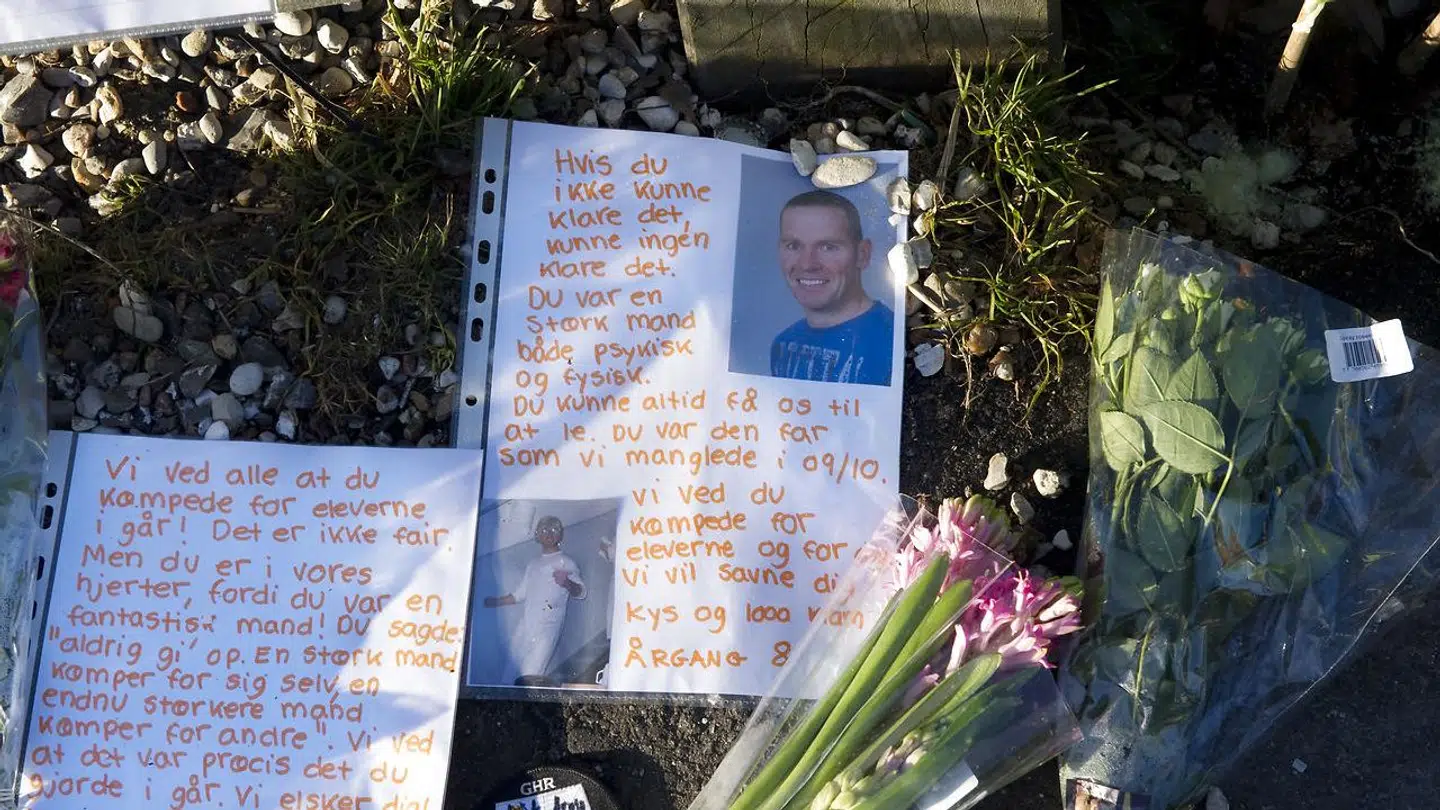 Hvis du
ikke kunne
klare det,
kunne ingen
klare det.
Du var en
stærk mand
både psykisk
og fysisk.
Du kunne altid få os til
at le. Du var den far
som vi manglede i 09/10.
Vi ved du
kæmpede for
eleverne og for
Vi vil savne
Kys og 1000
ÅRGANG
Vi ved alle at du
kæmpede for eleverne
i går! Det er ikke fair.
Men du er i vores
hjerter, fordi du var en
fantastisk mand! Du sagde:
"aldrig gi' op. En stærk mand
kæmper for sig selv, en
endnu stærkere mand
kæmper for andre". Vi ved
at det var præcis det du
gjorde i går. Vi elsker dig!
GHR